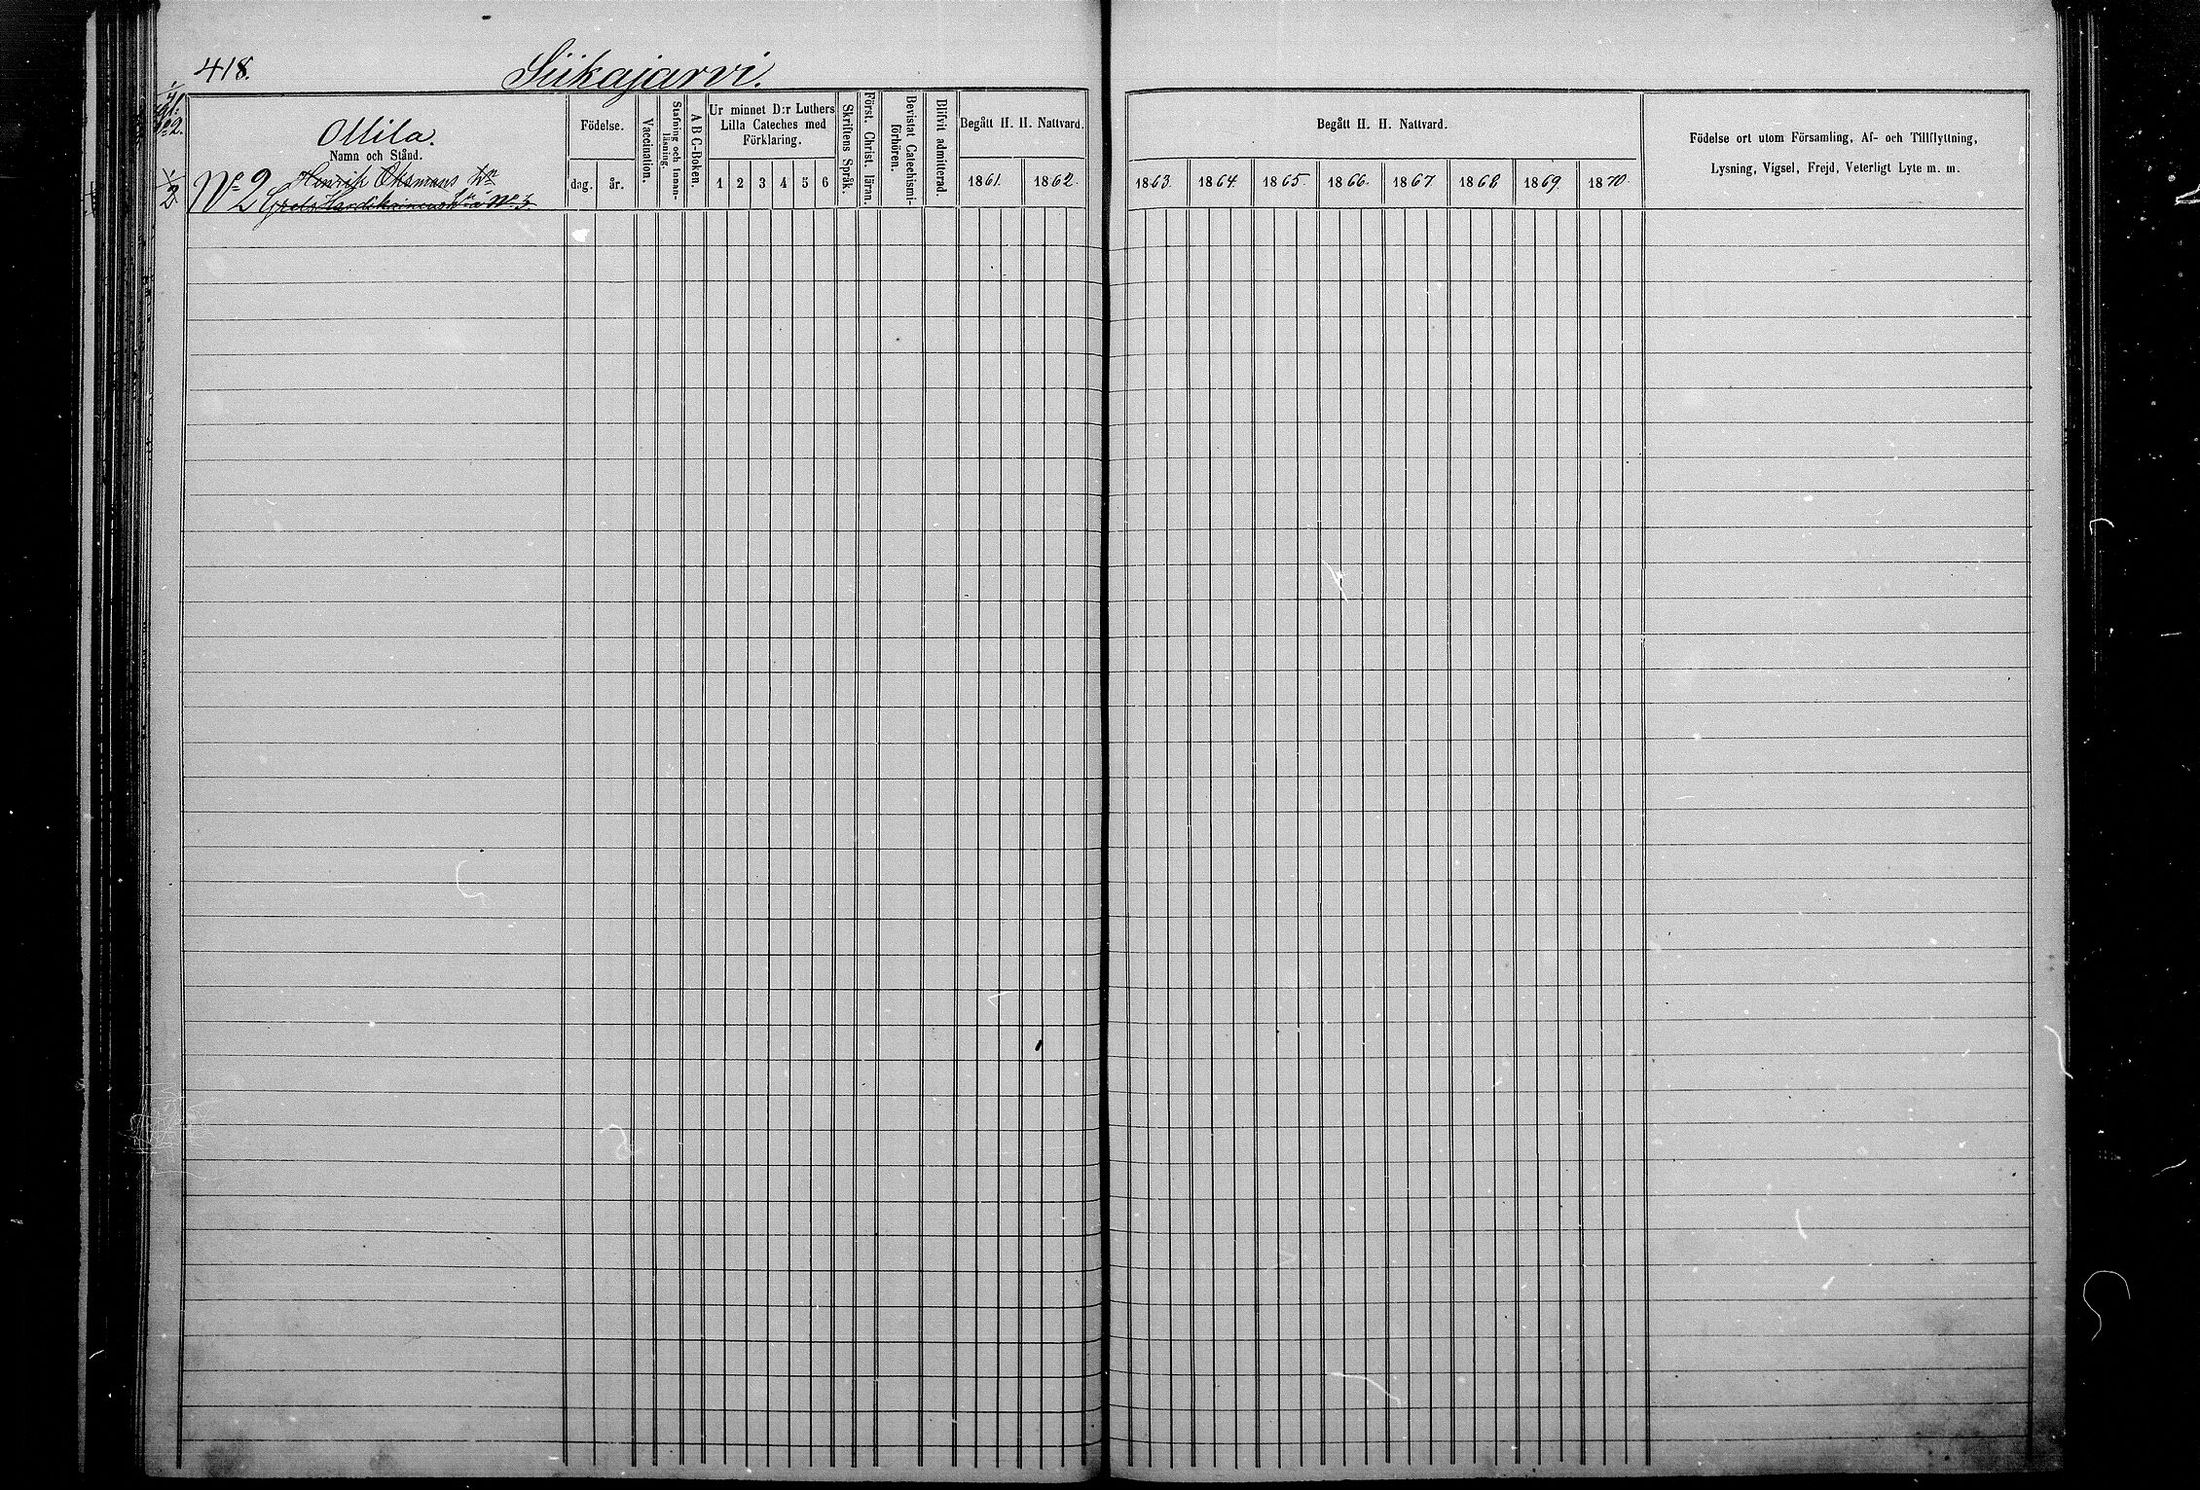 418.
Siikajarvi.
No 2.
Ollila.
Namn och Stånd.
1/2
No 2
Henrich Oksmans
Grels
No 3.
Födelse.
dag. år.
Vaccination.
Stafning och Innan-
läsning.
A B C-Boken.
Ur minnet D:r Luthers
Lilla Cateches med
Förklaring.
1 2 3 4 5 6
Skriftens Språk.
Först. Christ. läran.
Bevistat Catechismi-
förhören.
Blifvit admitterad.
Begått H. H. Nattvard.
1861. 1862.
Begått H. H. Nattvard.
1863. 1864. 1865. 1866. 1867 1868 1869. 1870.
Födelse ort utom Församling, Af- och Tillflyttning,
Lysning, Vigsel, Frejd, Veterligt Lyte m. m.